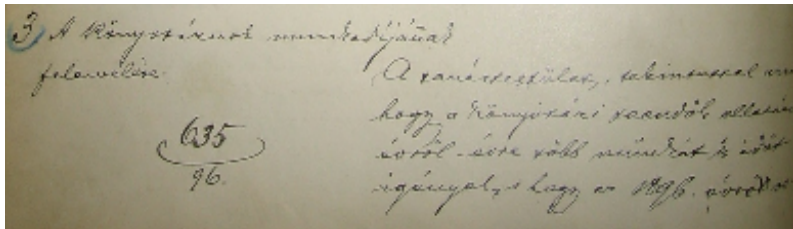 3) A Könyvtárnok munkadíjának
felemelése.
635
96.
A tanártestület, tekintettel
hogy a könyvtári teendők ellátás
évről-évre több munkát és időt
igényel, s hogy az 1896. évről